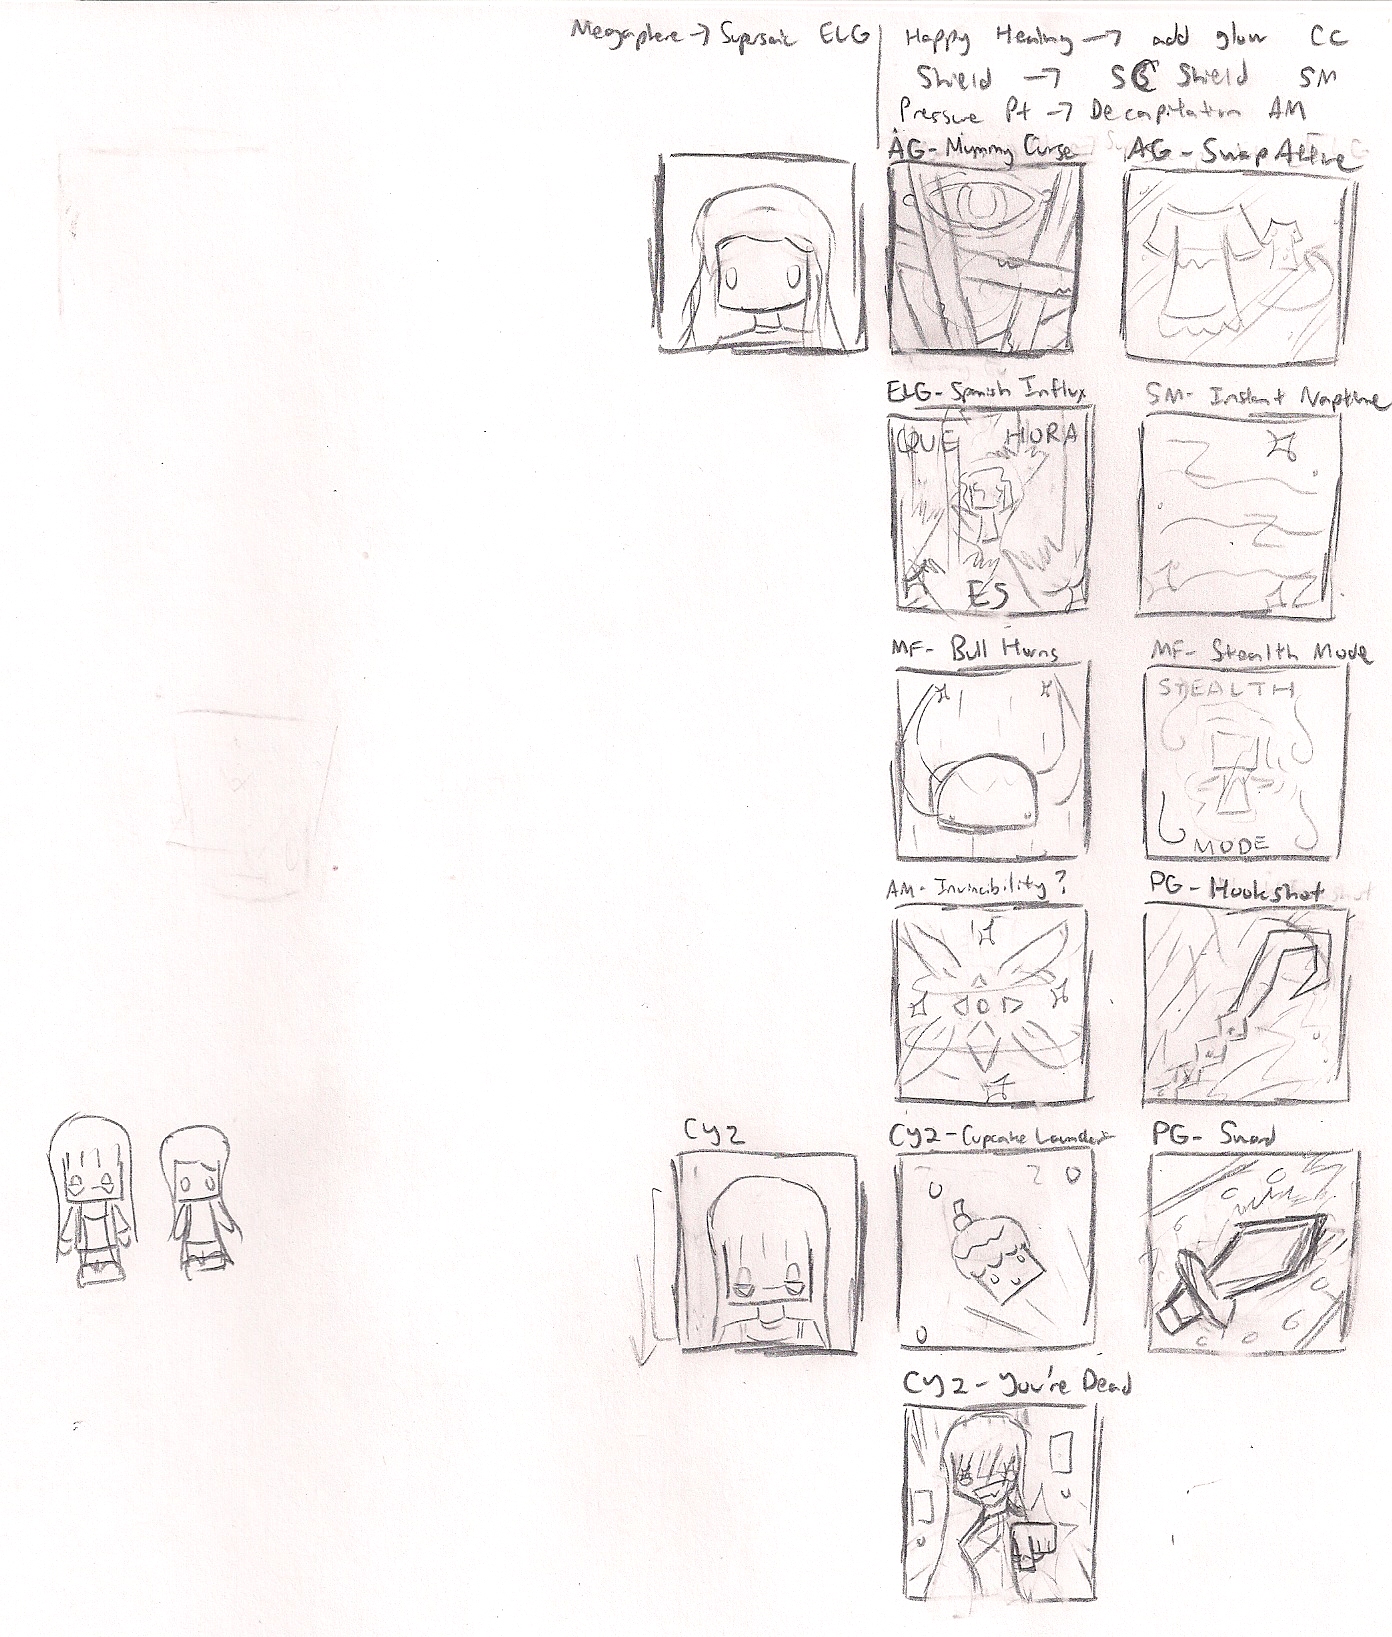 Megaphone → Supersonic ELG
Happy Healing → add glow CC
Shield → SC Shield SM
Pressure Pt → Decapitation AM
AG- Mummy Curse
AG - Swap Attire
ELG- Spanish Influx
SM- Instant Naptime
QUE HORA
ES
Z
Z
Z
MF- Bull Horns
MF- Stealth Mode
STEALTH
MODE
AM- Invincibility?
PG- Hookshot
Cy2
Cy2-Cupcake Launcher
PG- Sword
Cy2 - You're Dead